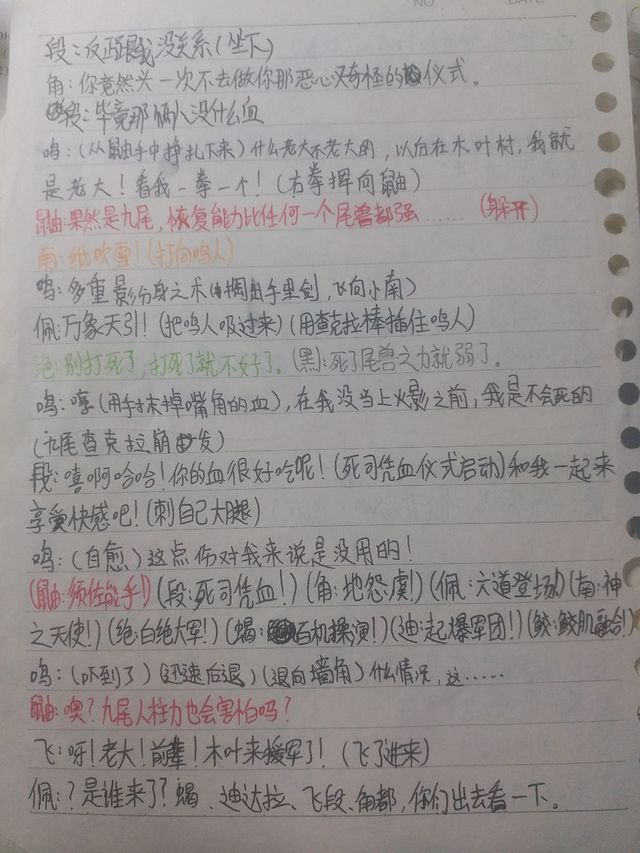 NO DATE
段：反正跟我没关系(坐下)
角：你竟然头一次不去做你那恶心又奇怪的仪式。
段：毕竟那俩人没什么血
鸣：(从鼬手中挣扎下来)什么老大不老大的，以后在木叶村，我就
是老大！看我一拳一个！(右拳挥向鼬)
鼬：果然是九尾，恢复能力比任何一个尾兽都强……(躲开)
南：纸吹雪！(打向鸣人)
鸣：多重影分身之术(掏出手里剑，飞向小南)
佩：万象天引！(把鸣人吸过来)(用查克拉棒插住鸣人)
绝：别打死了，打死了就不好了。(黑)：死了尾兽之力就弱了。
鸣：嘻(用手抹掉嘴角的血)，在我没当上火影之前，我是不会死的
(九尾查克拉崩发)
段：嘻啊哈哈！你的血很好吃呢！(死司凭血仪式启动)和我一起来
享受快感吧！(刺自己大腿)
鸣：(自愈)这点伤对我来说是没用的！
(鼬：须佐能乎！)(段：死司凭血！)(角：地怨虞！)(佩：六道登场！)(南：神
之天使！)(绝：白绝大军！)(蝎：百机操演！)(迪：起爆军团！)(鲛：鲛肌融合！)
鸣：(吓到了)(迅速后退)(退向墙角)什么情况，这……
鼬：噢？九尾人柱力也会害怕吗？
飞：呀！老大！前辈！木叶来援军了！(飞了进来)
佩：？是谁来了？蝎、迪达拉、飞段、角都，你们出去看一下。